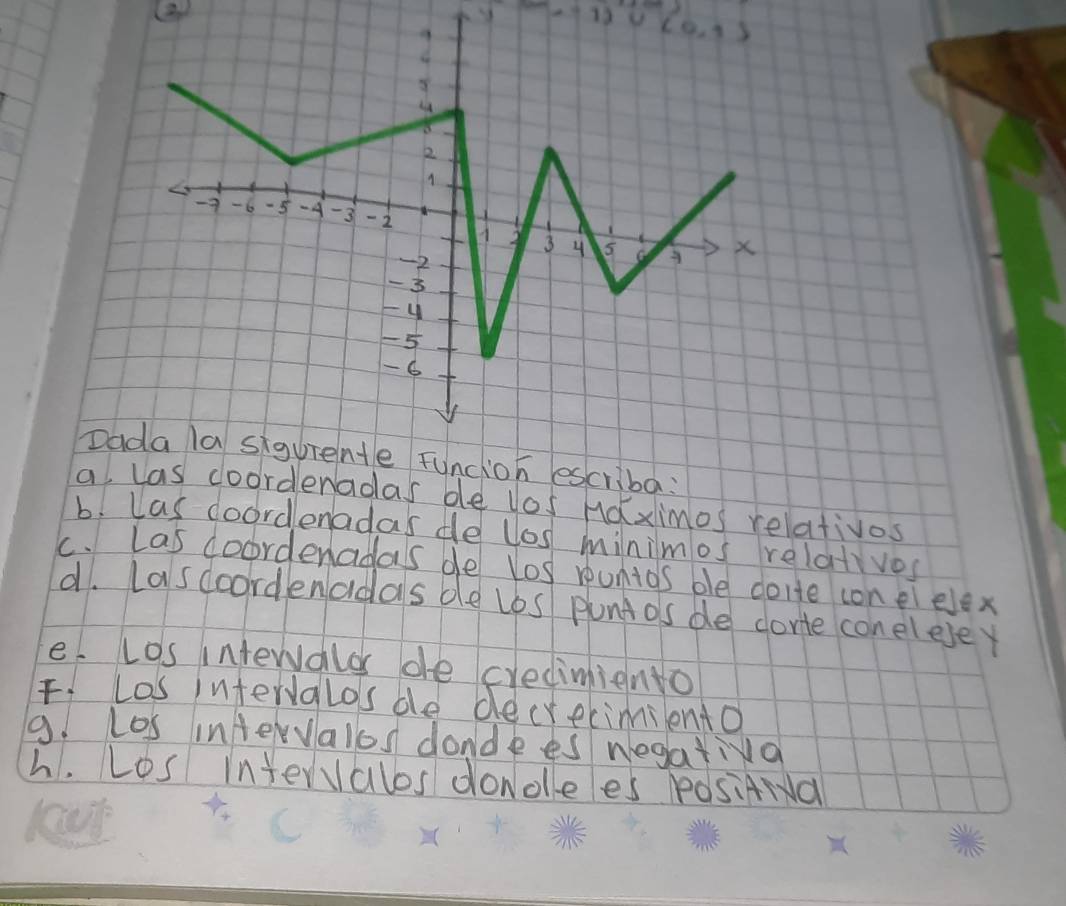 2
y
1) ∪ (0,1)
4
2
1
-7 -6 -5 -4 -3 -2
1 2 3 4 5 6 7 x
-2
-3
-4
-5
-6
Dada la siguiente Función escriba:
a. Las coordenadas de los Máximos relativos
b. Las coordenadas de los minimos relativos
c. Las coordenadas de los puntos de corte con el eje x
d. Las coordenadas de los puntos de corte con el eje y
e. Los intervalos de crecimiento
F. Los intervalos de decrecimiento
g. Los intervalos donde es negativa
h. Los intervalos donde es positiva